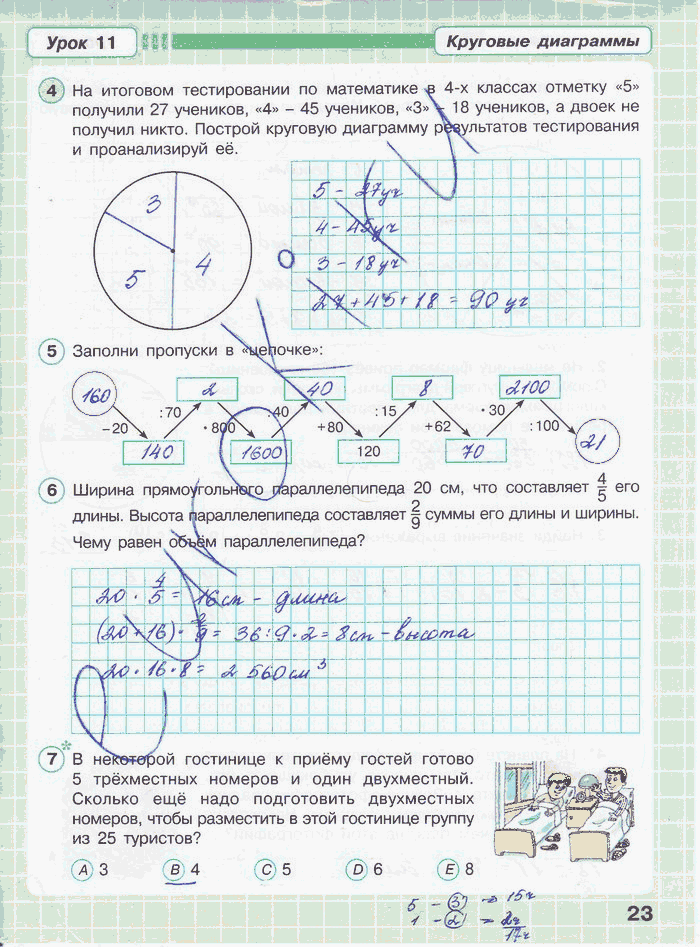 Урок 11
Круговые диаграммы
4 На итоговом тестировании по математике в 4-х классах отметку «5»
получили 27 учеников, «4» – 45 учеников, «3» – 18 учеников, а двоек не
получил никто. Построй круговую диаграмму результатов тестирования
и проанализируй её.
3
5
4
5 – 27 уч
4 – 45 уч
3 – 18 уч
27 + 45 + 18 = 90 уч
5 Заполни пропуски в «цепочке»:
160 2 40 8 2100
–20 :70 ·800 :40 +80 :15 +62 ·30 :100
140 1600 120 70 21
6 Ширина прямоугольного параллелепипеда 20 см, что составляет 4/5 его
длины. Высота параллелепипеда составляет 2/9 суммы его длины и ширины.
Чему равен объём параллелепипеда?
20 · 4/5 = 16 см – длина
(20 + 16) · 2/9 = 36 : 9 · 2 = 8 см – высота
20 · 16 · 8 = 2 560 см³
7* В некоторой гостинице к приёму гостей готово
5 трёхместных номеров и один двухместный.
Сколько ещё надо подготовить двухместных
номеров, чтобы разместить в этой гостинице группу
из 25 туристов?
A 3 B 4 C 5 D 6 E 8
5 – 3 = 15ч
1 – 2 = 2ч
17ч
23